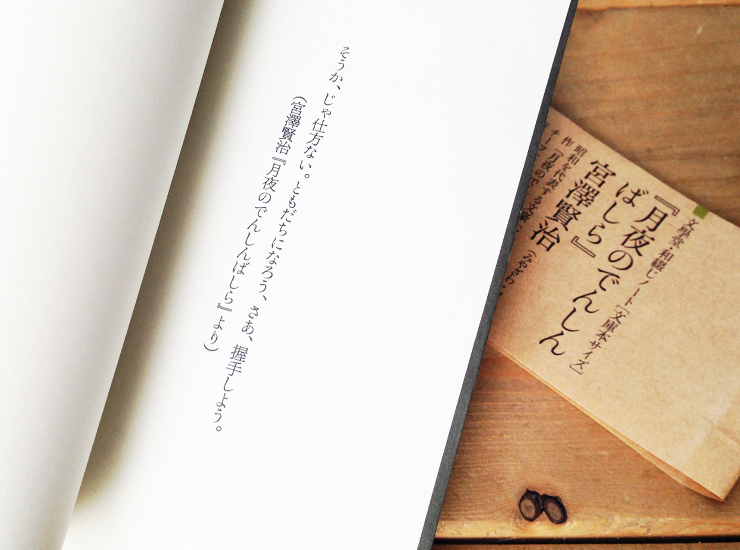 そうか、じゃ仕方ない。ともだちになろう、さあ、握手しよう。
(宮澤賢治『月夜のでんしんばしら』より)
文學堂・和綴じノート[文庫本サイズ]
『月夜のでんしん
ばしら』
宮澤賢治
昭和を代表する文
作『月夜ので
チーフ